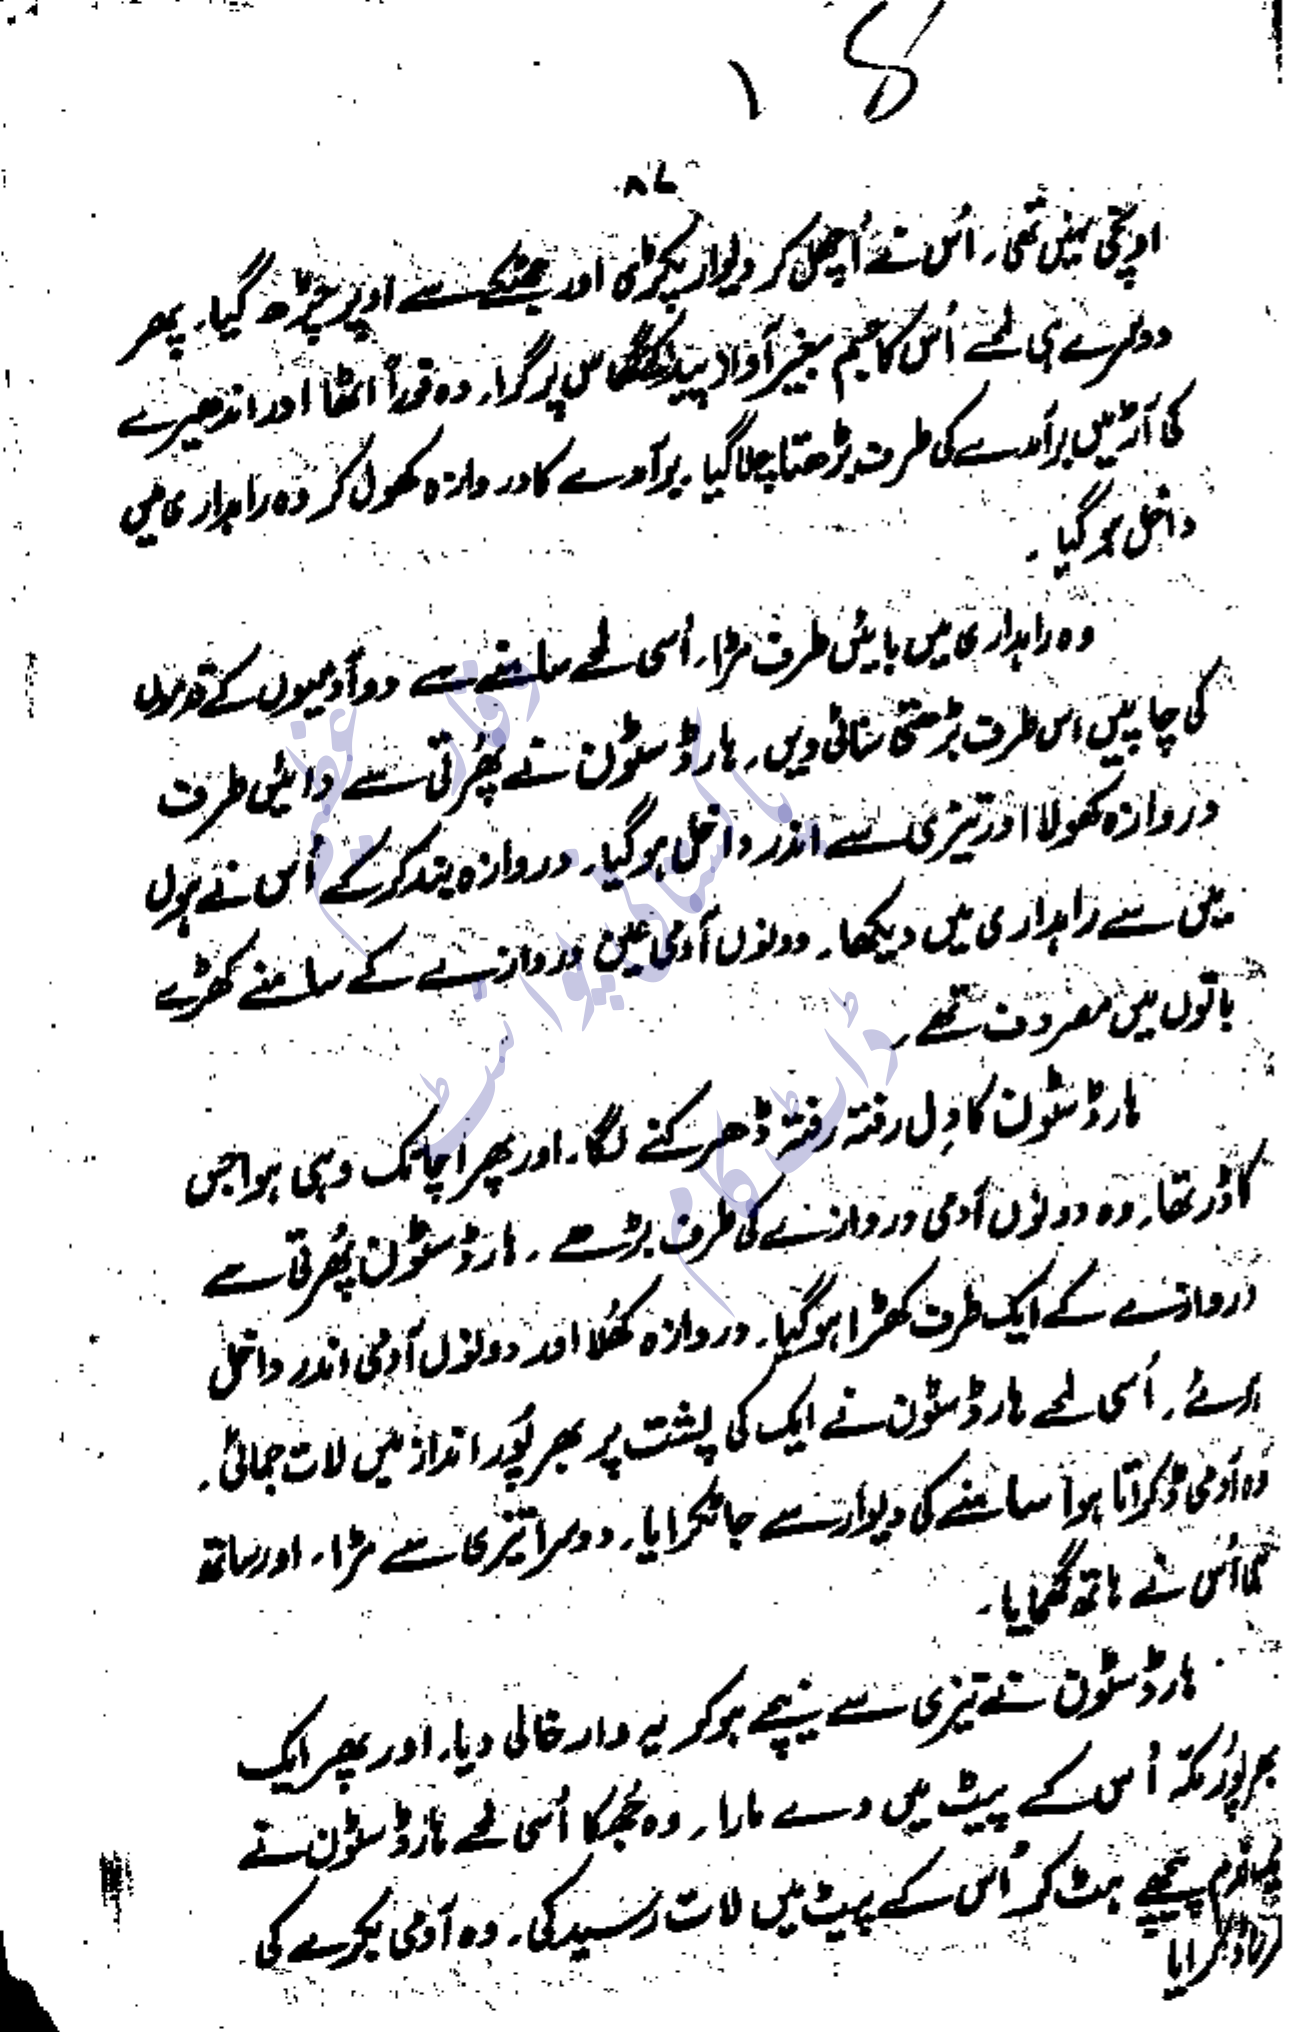 ۸۷
اونچی نہیں تھی۔ اُس نے اُچھل کر دیوار پکڑی اور جھٹکے سے اوپر چڑھ گیا۔ پھر
دوسرے ہی لمحے اُس کا جسم بغیر آواز پیدا کئے گھاس پر گرا۔ وہ فوراً اٹھا اور اندھیرے
کی آڑ میں برآمدے کی طرف بڑھتا چلا گیا۔ برآمدے کا دروازہ کھول کر وہ راہداری میں
داخل ہو گیا۔
وہ راہداری میں بائیں طرف مڑا۔ اُسی لمحے سامنے سے دو آدمیوں کے قدموں
کی چاپیں اس طرف بڑھتی سنائی دیں۔ ہارڈ سٹون نے پھُرتی سے دائیں طرف
دروازہ کھولا اور تیزی سے اندر داخل ہو گیا۔ دروازہ بند کر کے اُس نے ہول
میں سے راہداری میں دیکھا۔ دونوں آدمی عین دروازے کے سامنے کھڑے
باتوں میں مصروف تھے۔
ہارڈ سٹون کا دِل رفتہ رفتہ ڈھرکنے لگا۔ اور پھر اچانک وہی ہوا جس
کا ڈر تھا۔ وہ دونوں آدمی دروازے کی طرف بڑھے۔ ہارڈ سٹون پھُرتی سے
دروازے کے ایک طرف کھڑا ہو گیا۔ دروازہ کھُلا اور دونوں آدمی اندر داخل
ہوئے۔ اُسی لمحے ہارڈ سٹون نے ایک کی پشت پر بھرپُور انداز میں لات جمائی۔
وہ آدمی ڈکراتا ہوا سامنے کی دیوار سے جا ٹکرایا۔ دوسرا تیزی سے مڑا۔ اور ساتھ
ہی اُس نے ہاتھ گھمایا۔
ہارڈ سٹون نے تیزی سے نیچے ہو کر یہ وار خالی دیا۔ اور پھر ایک
بھرپُور مکّہ اُس کے پیٹ میں دے مارا۔ وہ جھُکا اُسی لمحے ہارڈ سٹون نے
پیچھے ہٹ کر اُس کے پیٹ میں لات رسید کی۔ وہ آدمی بکرے کی
وقار عظیم
پاکستانی پوائنٹ
ڈاٹ کام